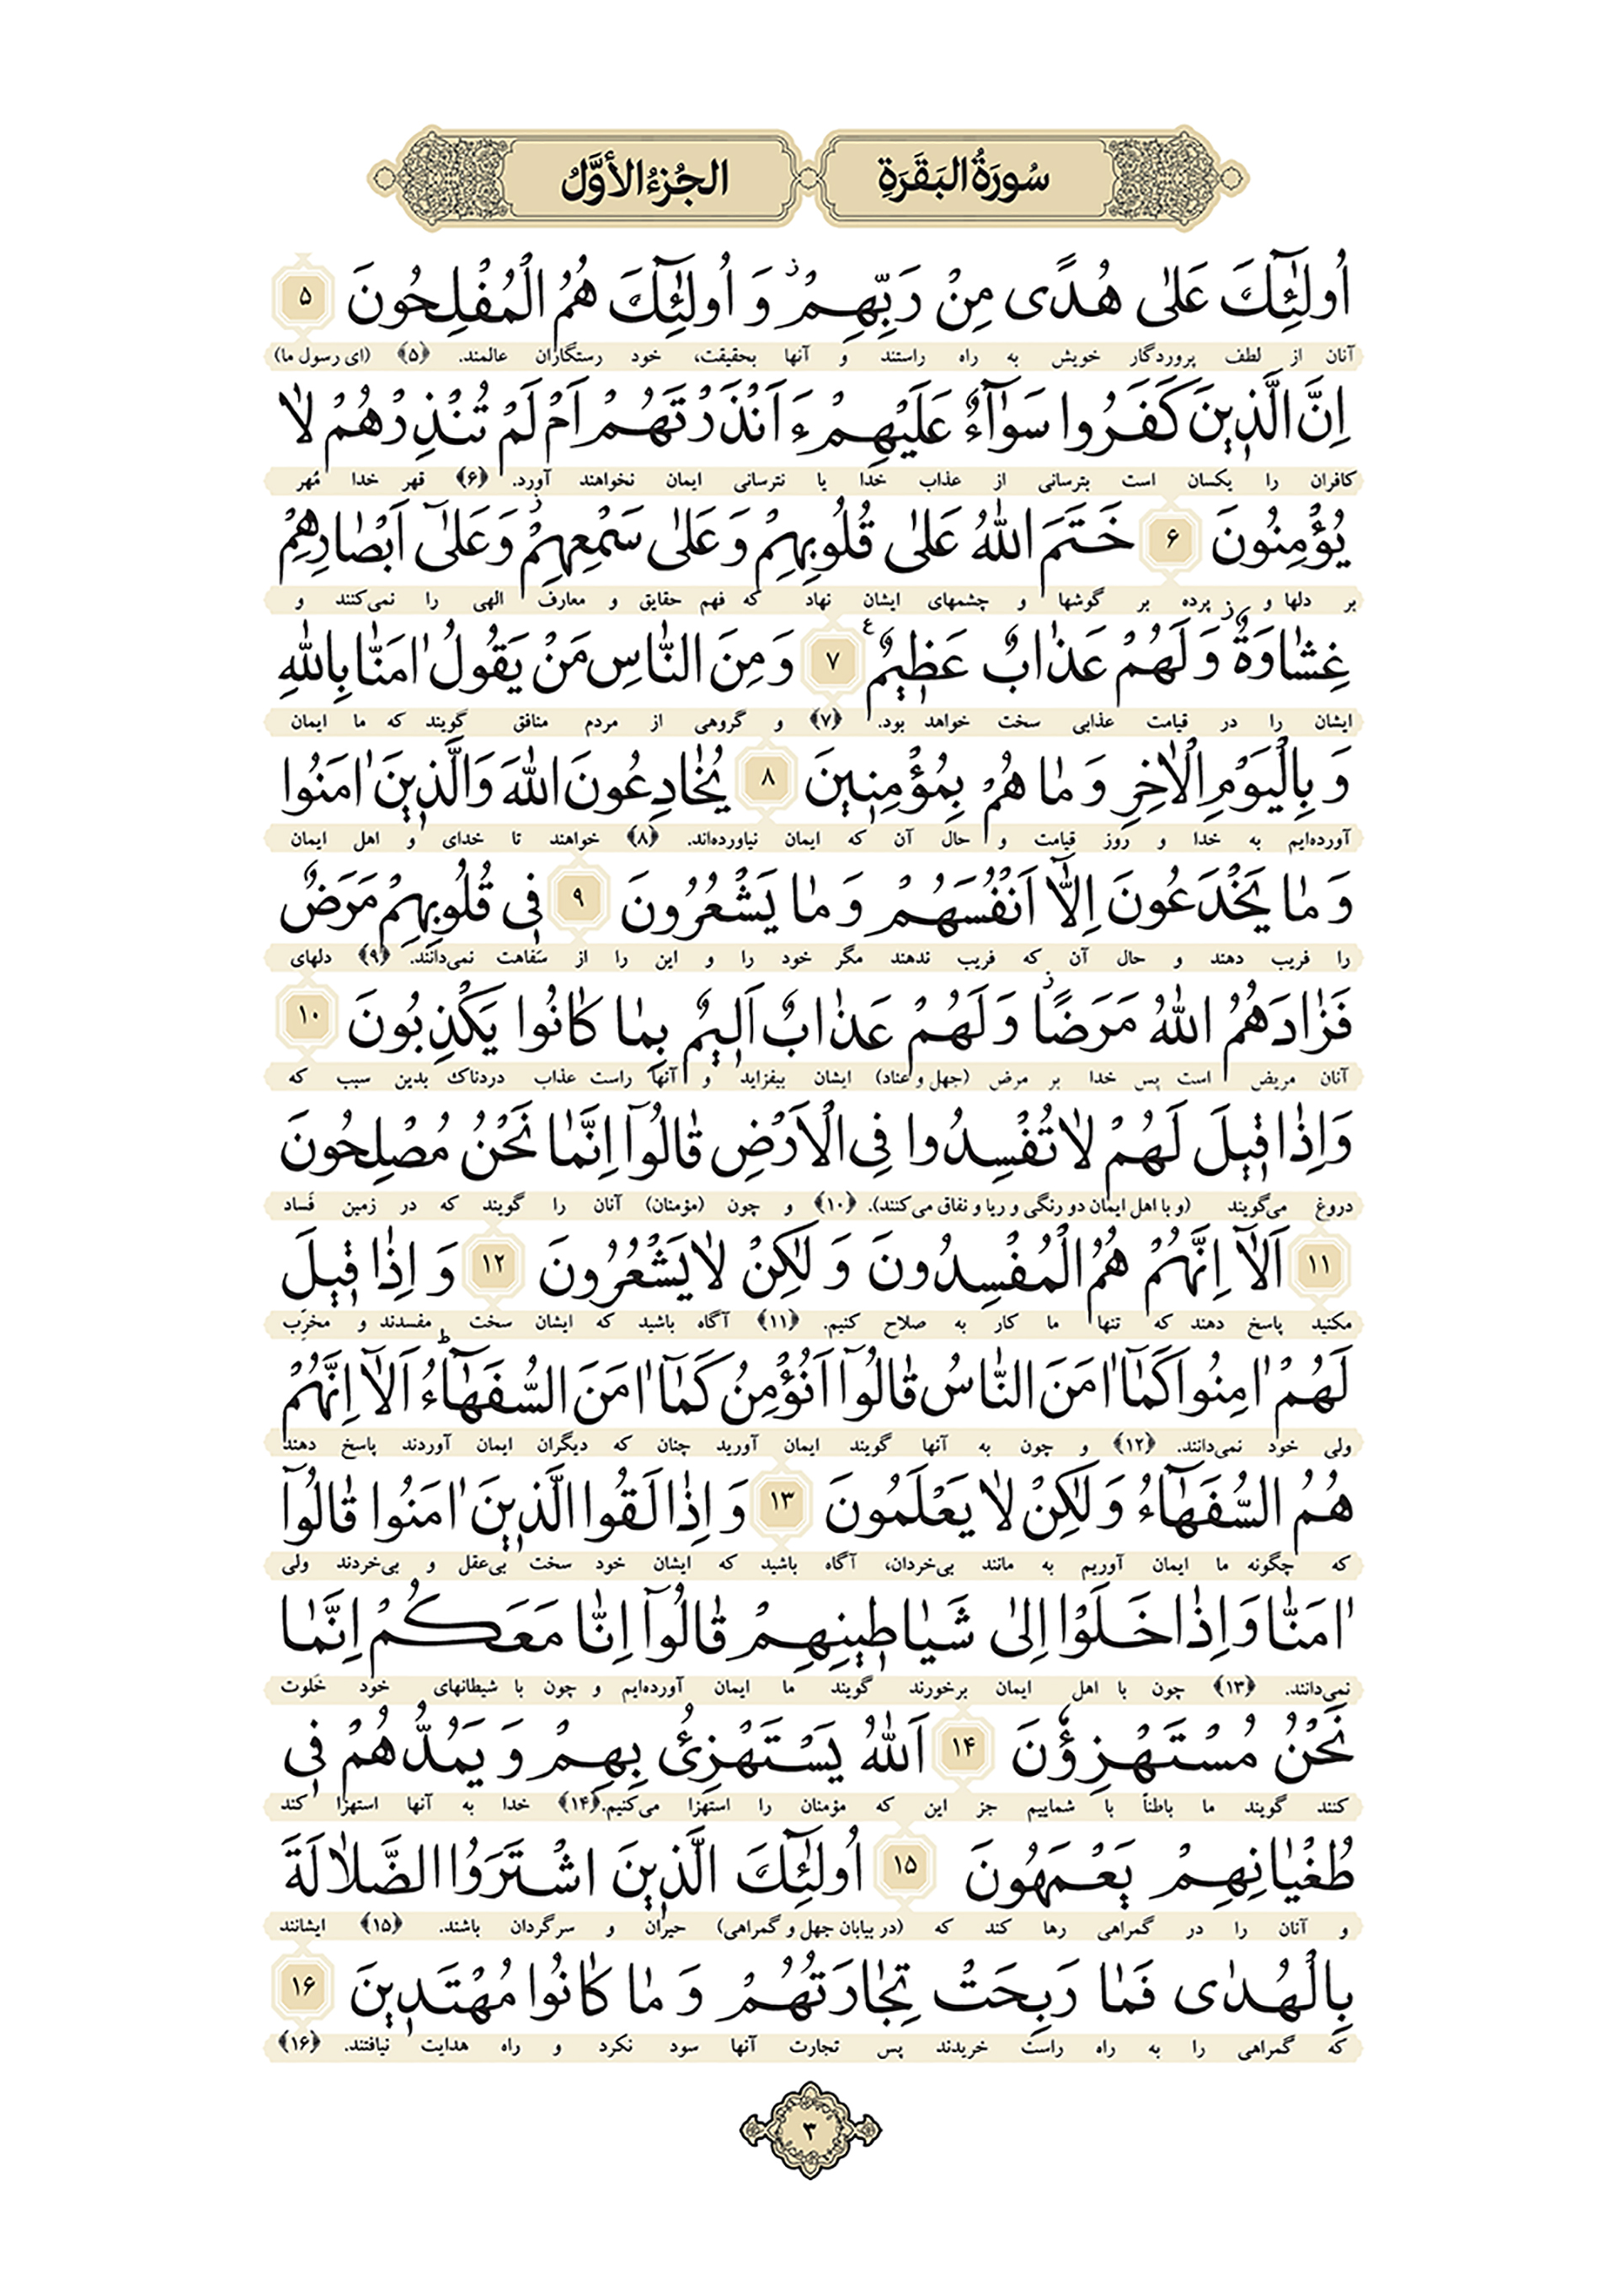 سُورَةُ البَقَرَةِ
الجُزءُ الأوَّلُ
اُولٰٓئِكَ عَلٰى هُدًى مِنْ رَبِّهِمْ ۖ وَ اُولٰٓئِكَ هُمُ الْمُفْلِحُونَ ۵
آنان از لطف پروردگار خویش به راه راستند و آنها بحقیقت، خود رستگاران عالمند. ﴿۵﴾ (ای رسول ما)
اِنَّ الَّذينَ كَفَرُوا سَوٰٓاءٌ عَلَيْهِمْ ءَاَنْذَرْتَهُمْ اَمْ لَمْ تُنْذِرْهُمْ لٰا
کافران را یکسان است بترسانی از عذاب خدا یا نترسانی ایمان نخواهند آورد. ﴿۶﴾ قهر خدا مُهر
يُؤْمِنُونَ ۶ خَتَمَ اللّٰهُ عَلٰى قُلُوبِهِمْ وَ عَلٰى سَمْعِهِمْ وَ عَلٰٓى اَبْصٰارِهِمْ
بر دلها و پرده بر گوشها و چشمهای ایشان نهاد که فهم حقایق و معارف الهی را نمی‌کنند و
غِشٰاوَةٌ وَ لَهُمْ عَذٰابٌ عَظيمٌ ۷ وَ مِنَ النّٰاسِ مَنْ يَقُولُ اٰمَنّٰا بِاللّٰهِ
ایشان را در قیامت عذابی سخت خواهد بود. ﴿۷﴾ و گروهی از مردم منافق گویند که ما ایمان
وَ بِالْيَوْمِ الْاٰخِرِ وَ مٰا هُمْ بِمُؤْمِنينَ ۸ يُخٰادِعُونَ اللّٰهَ وَ الَّذينَ اٰمَنُوا
آورده‌ایم به خدا و روز قیامت و حال آن که ایمان نیاورده‌اند. ﴿۸﴾ خواهند تا خدای و اهل ایمان
وَ مٰا يَخْدَعُونَ اِلّٰٓا اَنْفُسَهُمْ وَ مٰا يَشْعُرُونَ ۹ فى قُلُوبِهِمْ مَرَضٌ
را فریب دهند و حال آن که فریب ندهند مگر خود را و این را از سَفاهت نمی‌دانند. ﴿۹﴾ دلهای
فَزٰادَهُمُ اللّٰهُ مَرَضًا وَ لَهُمْ عَذٰابٌ اَليمٌ بِمٰا كٰانُوا يَكْذِبُونَ ۱۰
آنان مریض است پس خدا بر مرض (جهل و عناد) ایشان بیفزاید و آنها راست عذاب دردناک بدین سبب که
وَ اِذٰا قيلَ لَهُمْ لٰا تُفْسِدُوا فِى الْاَرْضِ قٰالُوٓا اِنَّمٰا نَحْنُ مُصْلِحُونَ
دروغ می‌گویند (و با اهل ایمان دو رنگی و ریا و نفاق می‌کنند). ﴿۱۰﴾ و چون (مؤمنان) آنان را گویند که در زمین فَساد
۱۱ اَلٰٓا اِنَّهُمْ هُمُ الْمُفْسِدُونَ وَ لٰكِنْ لٰا يَشْعُرُونَ ۱۲ وَ اِذٰا قيلَ
مکنید پاسخ دهند که تنها ما کار به صلاح کنیم. ﴿۱۱﴾ آگاه باشید که ایشان سخت مفسدند و مخرّب
لَهُمْ اٰمِنُوا كَمٰٓا اٰمَنَ النّٰاسُ قٰالُوٓا اَنُؤْمِنُ كَمٰٓا اٰمَنَ السُّفَهٰٓاءُ اَلٰٓا اِنَّهُمْ
ولی خود نمی‌دانند. ﴿۱۲﴾ و چون به آنها گویند ایمان آورید چنان که دیگران ایمان آوردند پاسخ دهند
هُمُ السُّفَهٰٓاءُ وَ لٰكِنْ لٰا يَعْلَمُونَ ۱۳ وَ اِذٰا لَقُوا الَّذينَ اٰمَنُوا قٰالُوٓا
که چگونه ما ایمان آوریم به مانند بی‌خردان، آگاه باشید که ایشان خود سخت بی‌عقل و بی‌خردند ولی
اٰمَنّٰا وَ اِذٰا خَلَوْا اِلٰى شَيٰاطينِهِمْ قٰالُوٓا اِنّٰا مَعَكُمْ اِنَّمٰا
نمی‌دانند. ﴿۱۳﴾ چون با اهل ایمان برخورند گویند ما ایمان آورده‌ایم و چون با شیطانهای خود خَلوت
نَحْنُ مُسْتَهْزِؤُنَ ۱۴ اَللّٰهُ يَسْتَهْزِئُ بِهِمْ وَ يَمُدُّهُمْ فى
کنند گویند ما باطناً با شماییم جز این که مؤمنان را استهزا می‌کنیم.﴿۱۴﴾ خدا به آنها استهزا کند
طُغْيٰانِهِمْ يَعْمَهُونَ ۱۵ اُولٰٓئِكَ الَّذينَ اشْتَرَوُا الضَّلٰالَةَ
و آنان را در گمراهی رها کند که (در بیابان جهل و گمراهی) حیران و سرگردان باشند. ﴿۱۵﴾ ایشانند
بِالْهُدٰى فَمٰا رَبِحَتْ تِجٰارَتُهُمْ وَ مٰا كٰانُوا مُهْتَدينَ ۱۶
که گمراهی را به راه راست خریدند پس تجارت آنها سود نکرد و راه هدایت نیافتند. ﴿۱۶﴾
۳